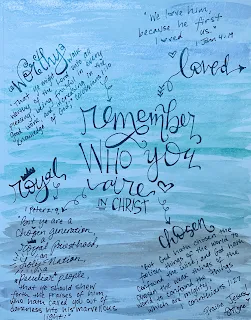 "We love him,
because he first
loved us."
1 John 4:19
loved
Worthy
"That ye might walk
worthy of the Lord unto all
pleasing, being fruitful in every
good work, and increasing in the
knowledge of God."
remember
WHO YOU
are
IN CHRIST
royal
1 Peter 2:9
"But ye are a
chosen generation,
a royal priesthood,
an holy nation,
a peculiar people;
that ye should shew
forth the praises of him
who hath called you out of
darkness into his marvellous
light:"
chosen
"But God hath chosen the
foolish things of the world
to confound the wise; and God hath
chosen the weak things of the
world to confound the things
which are mighty;"
1 Corinthians 1:27